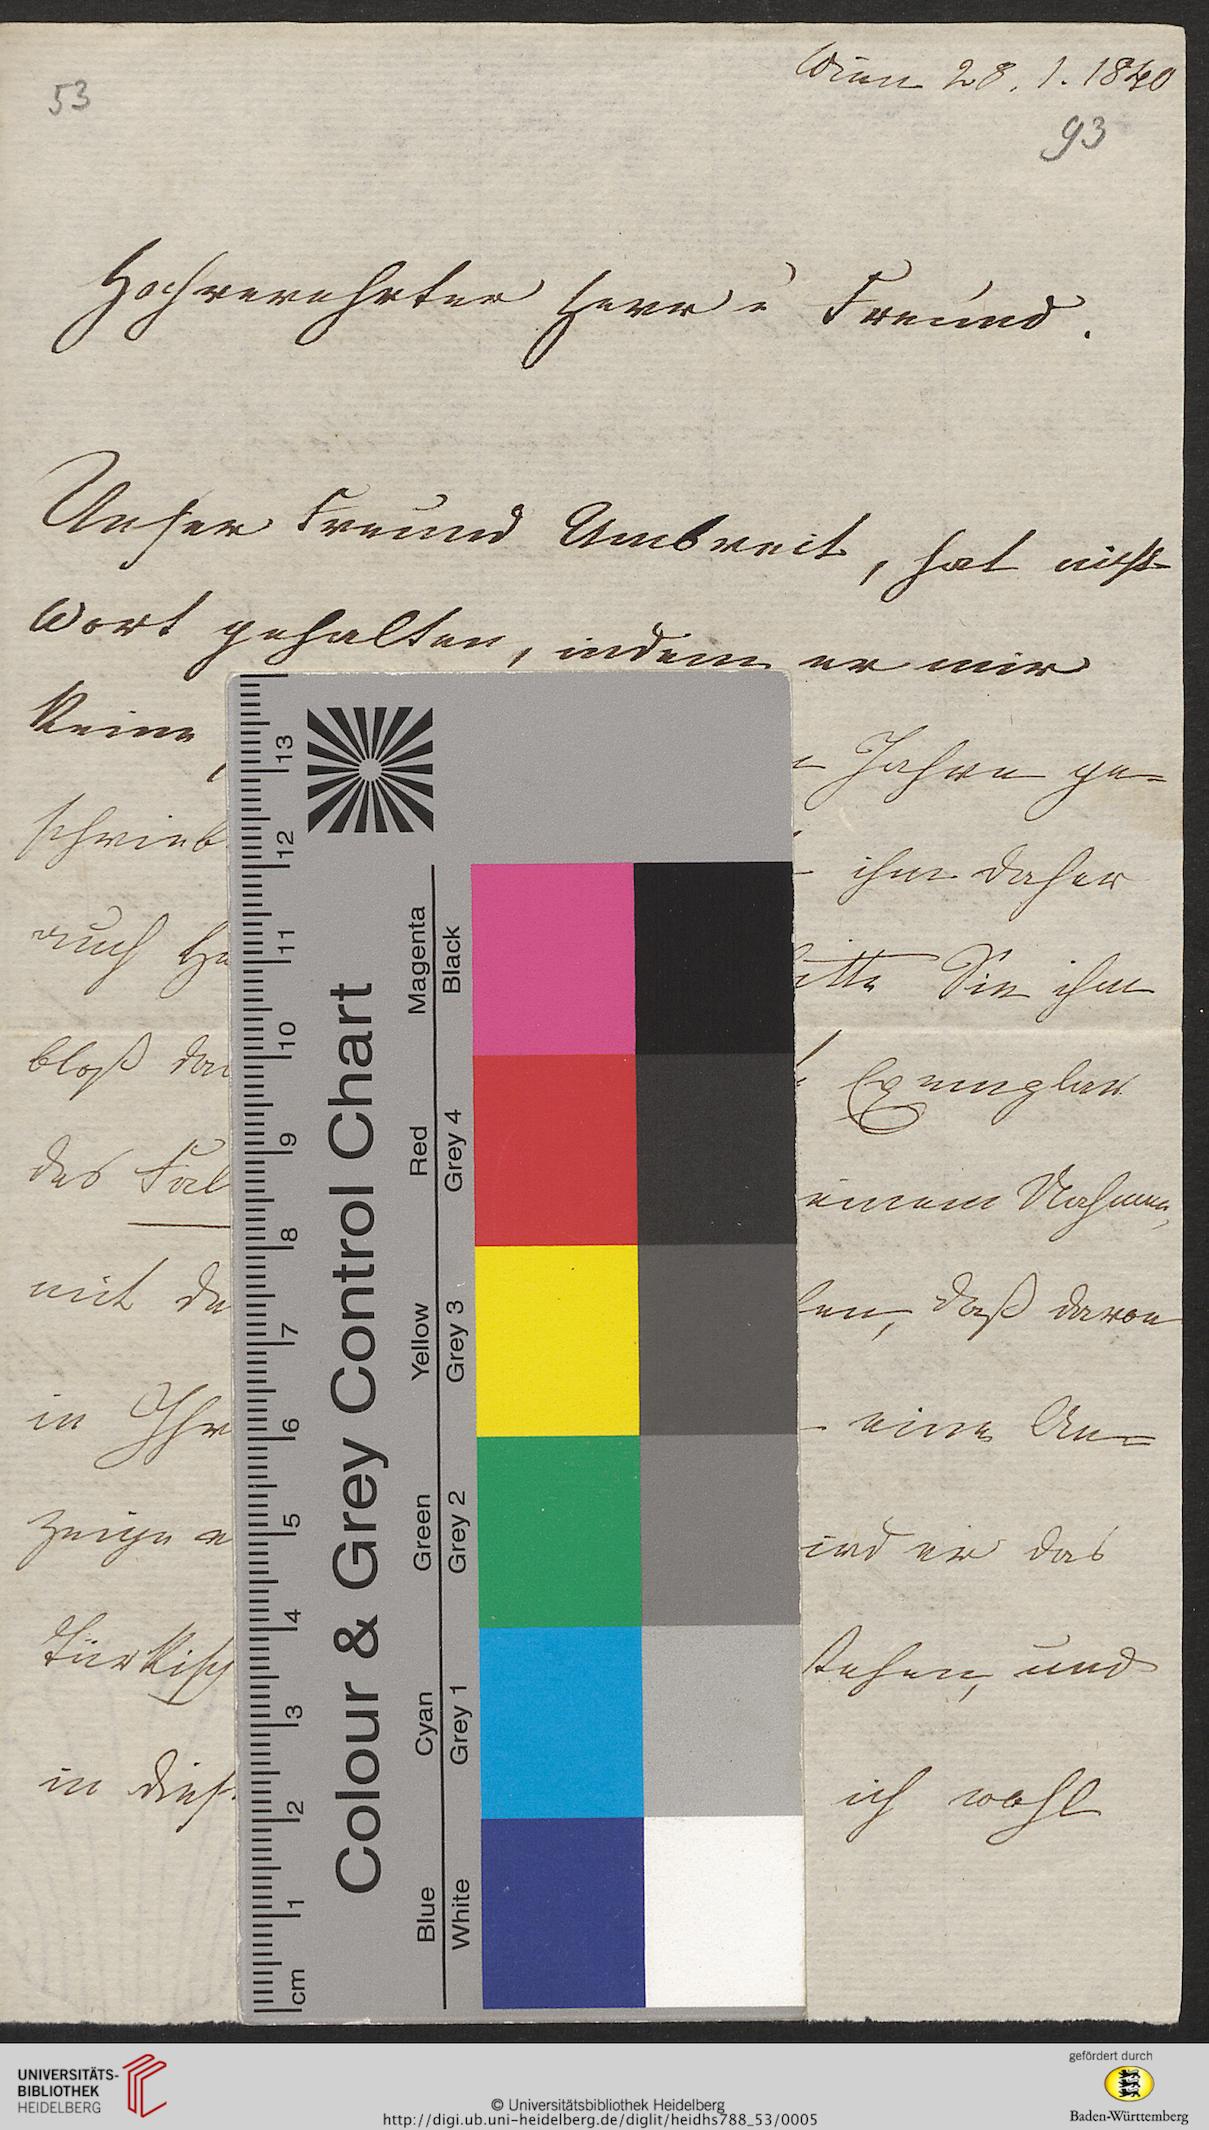 53
Wien 28. 1. 1840
93
Hochverehrter Herr u Freund.
Unser Freund Umbreit, hat nicht
Wort gehalten, indem er mir
keine
Jahre ge=
schrieb
ihm daher
auch
bitte Sie ihm
bloß
Exemplar
des Fal
meinem Nahmen,
mit
daß davon
in Ihr
eine An=
zeige
wird er das
türkisch
stehen, und
in dies
ich wohl
Colour & Grey Control Chart
Magenta
Red
Yellow
Green
Cyan
Blue
Black
Grey 4
Grey 3
Grey 2
Grey 1
White
13
12
11
10
9
8
7
6
5
4
3
2
1
cm
UNIVERSITÄTS-
BIBLIOTHEK
HEIDELBERG
© Universitätsbibliothek Heidelberg
http://digi.ub.uni-heidelberg.de/diglit/heidhs788_53/0005
gefördert durch
Baden-Württemberg